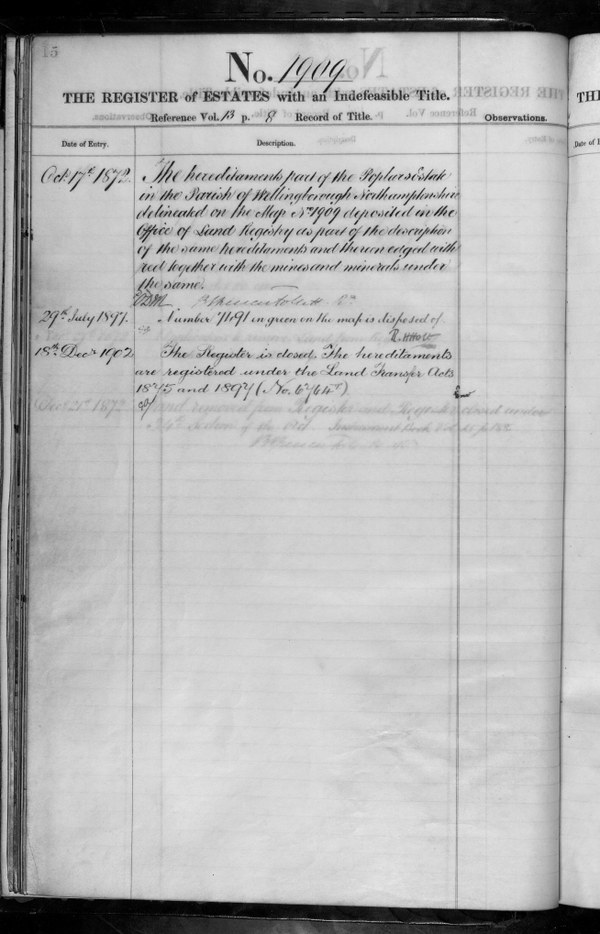 15
No. 1909
THE REGISTER of ESTATES with an Indefeasible Title.
Reference Vol. 13 p. 8 Record of Title.
Observations.
Date of Entry.
Description.
Oct 17th 1872.
The hereditaments part of the Poplars Estate
in the Parish of Wellingborough Northamptonshire
delineated on the Map No 1909 deposited in the
Office of Land Registry as part of the description
of the same hereditaments and thereon edged with
red together with the mines and minerals under
the same.
29th July 1897.
Number on green on the map is disposed of
18th Decr 1902
The Register is closed. The hereditaments
are registered under the Land Transfer Acts
1875 and 1897 (No.
THE
Date of E